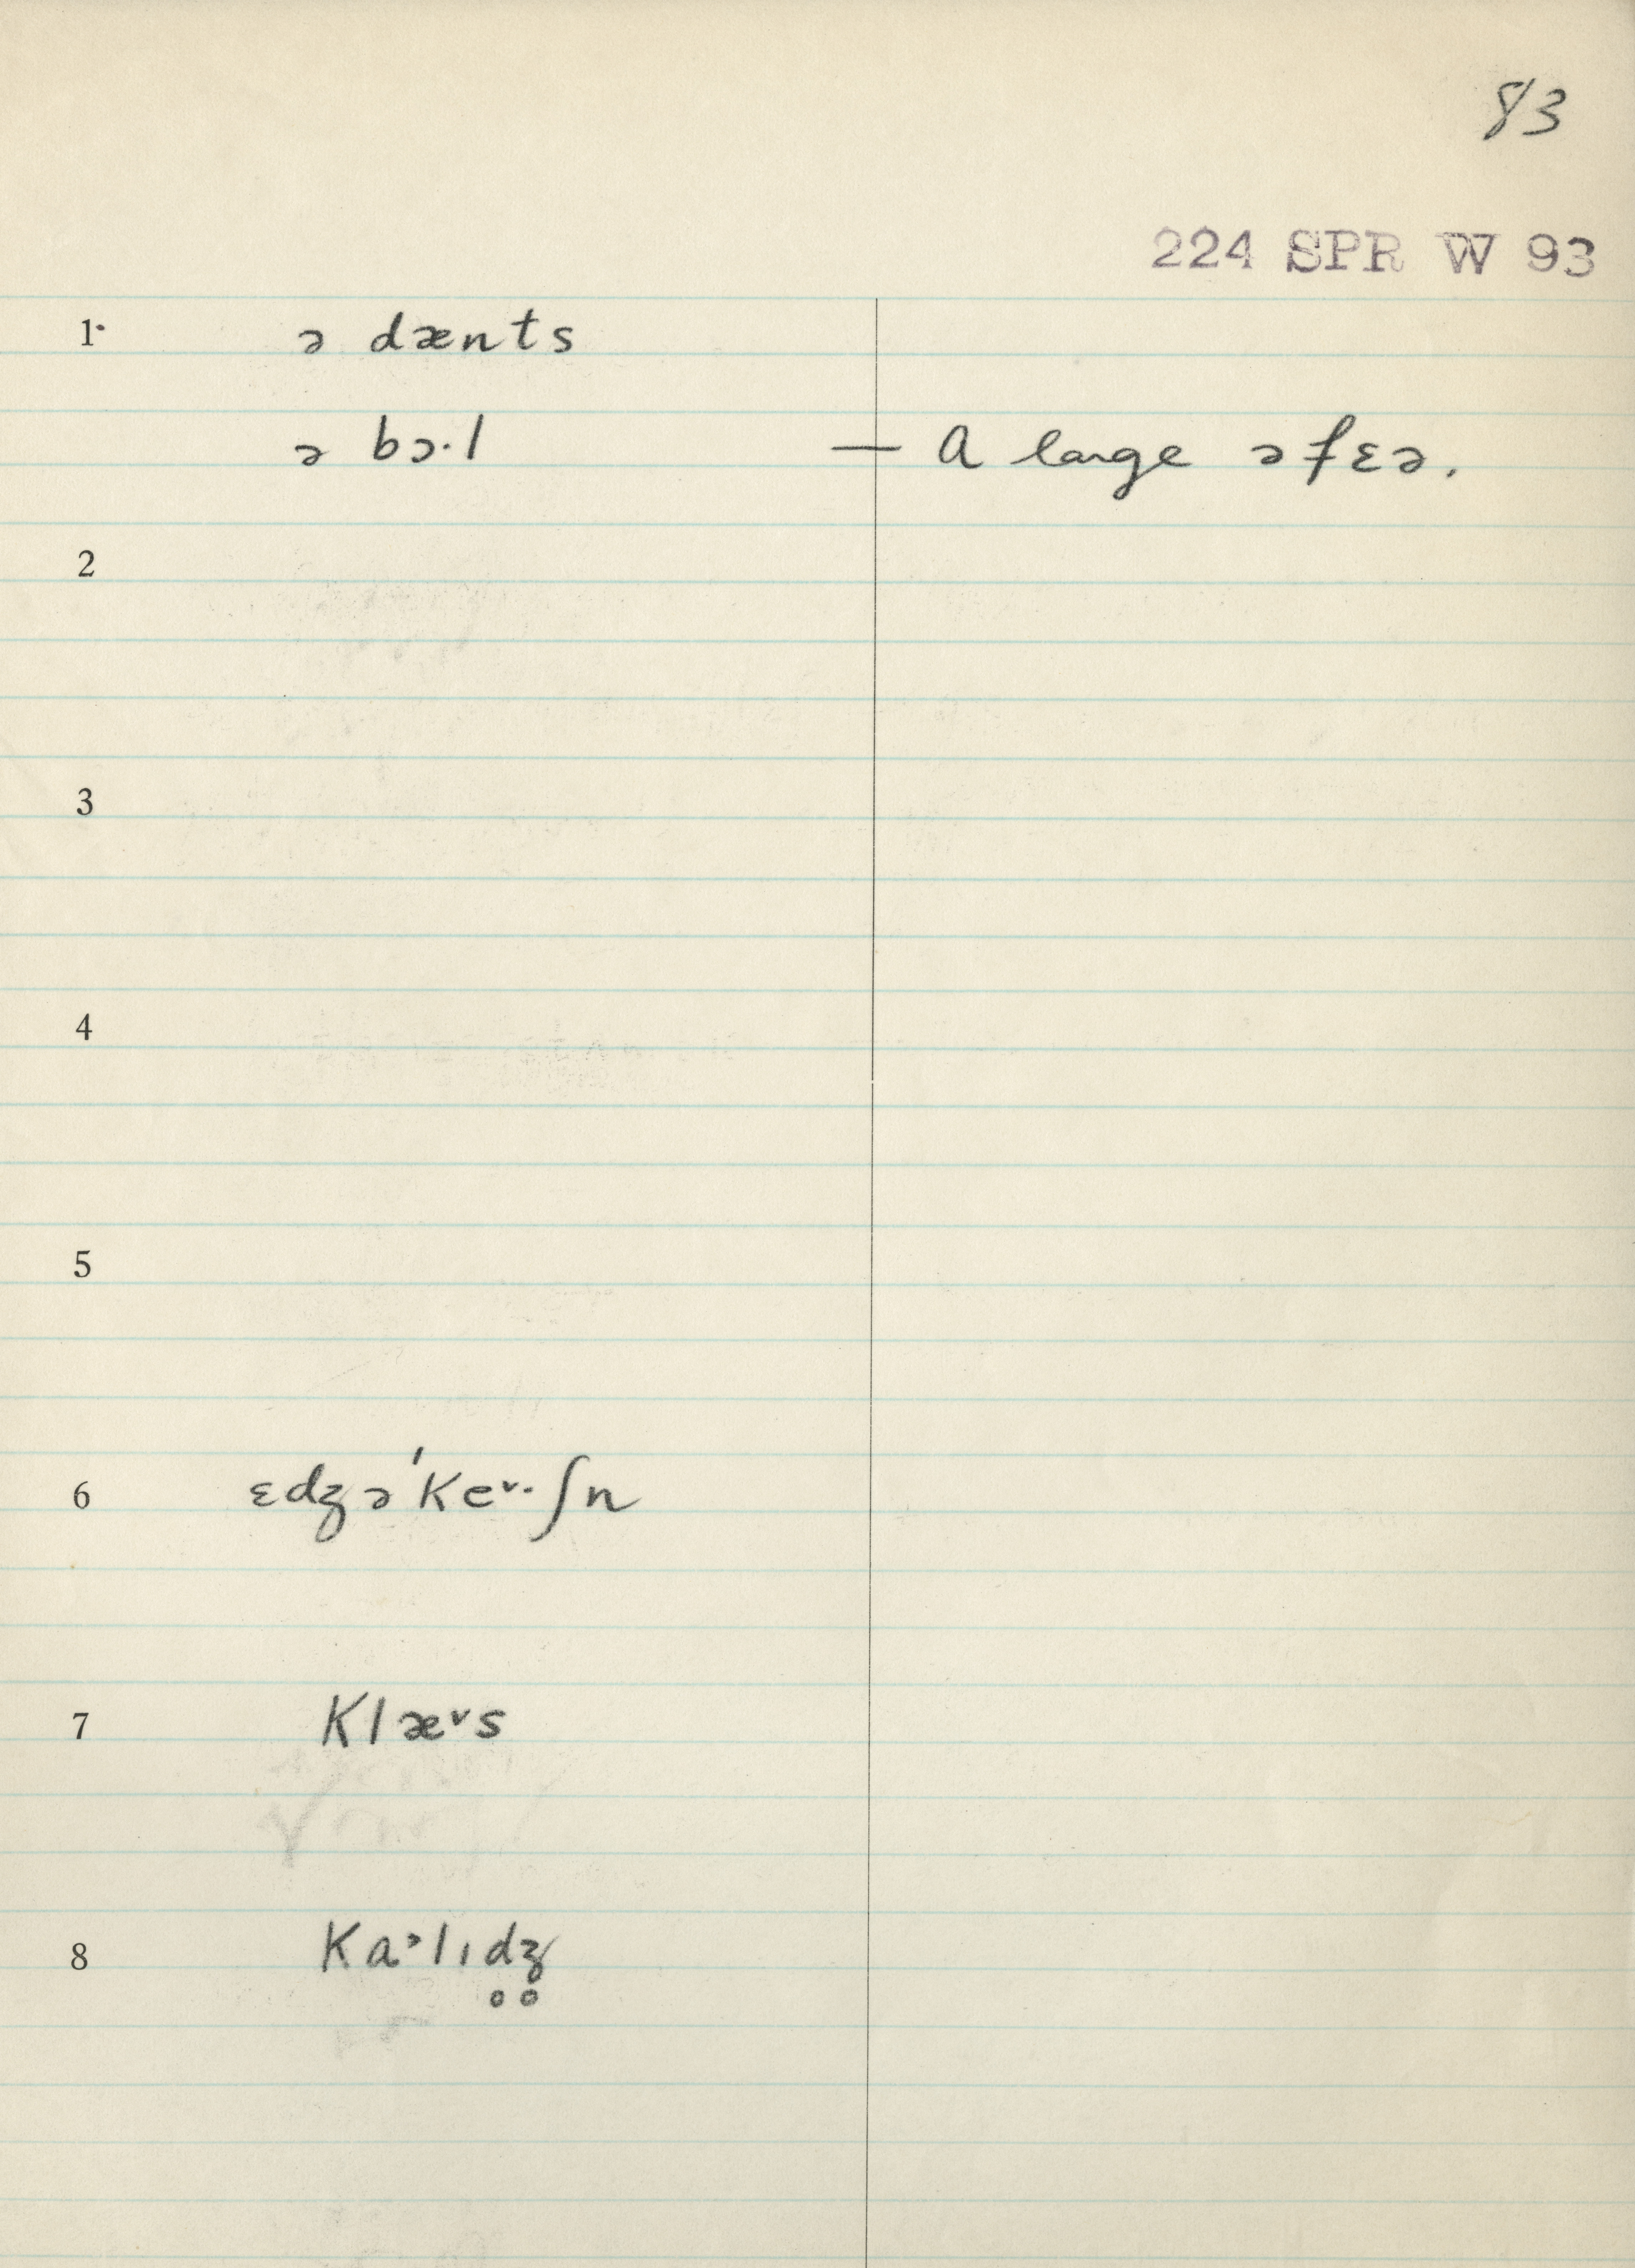 83
224 SPR W 93
1· ə dænts
ə bɔ·l — A large əfɛə.
2
3
4
5
6 ɛdʒə'Ke˅·ʃn
7 Klæ˅s
8 Ka˃lıdʒ̥̊